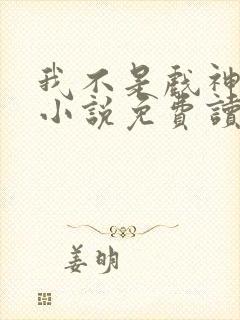 我不是戲神
小說免費讀
姜明